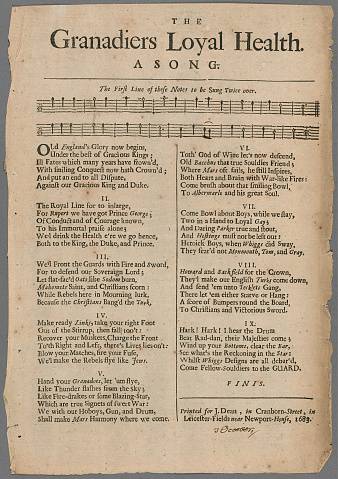 THE
Granadiers Loyal Health.
A SONG.
The First Line of these Notes to be Sung Twice over.
OLd England's Glory now begins,
Under the best of Gracious Kings;
Ill Fates which many years have frow'd,
With smiling Conquest now hath Crown'd;
And put an end to all Dispute,
Against our Gracious King and Duke.
II.
The Royal Line for to inlarge,
For Rupert we have got Prince George;
Of Conduct and of Courage known,
To his Immortal praise alone;
We'd drink the Health e're we go hence,
Both to the King, the Duke, and Prince.
III.
We'll front the Guards with Fire and Sword,
For to defend our Soveraign Lord;
Let Oats like Sodom burn,
Mahomets Saint, and Christians scorn
While Rebels here in Mourning lurk,
Because the Christians Bang'd the Turk.
IV.
Make ready Links, take your right Foot
Out of the Stirrup, then fall too't:
Recover your Muskets, Change the Front
To th' Right and Left, there's Lives lies on't:
Blow your Matches, fire your Fuse,
We'l make the Rebels flye like Jews.
V.
Hand your Granadoes, let 'um flye,
Like Thunder flashes from the sky;
Like Fire-drakes or some Blazing-Star,
Which are true Signets of sweet War:
We with our Hoboys, Gun, and Drum,
Shall make Mars Harmony where we come.
VI.
Toth' God of Wine let's now descend,
Old Bacchus that true Souldiers Friend;
Where Mars oft fails, he still Inspires,
Both Heart and Brain with War-like Fires:
Come broth about that smiling Bowl,
To Albermarle and his great Soul.
VII.
Come Bowl about Boys, while we stay,
Two in a Hand to Loyal Gay;
And Daring Parker true and stout,
And Hastings must not be left out:
Heroick Boys, when Whiggs did Sway,
They fear'd not Monmouth, Tom, and Gray.
VIII.
Howard and Sackfield for the Crown,
They'l make our English Turks come down,
And send 'em unto Teckely Gang,
There let 'em either Starve or Hang:
A score of Bumpers round the Board,
To Christians and Victorious Sword.
IX.
Hark! Hark! I hear the Drum
Beat Rad-dan, their Majesties come;
Wind up your Bottoms, clear the Bar,
See what's the Reckoning in the Star:
Whilst Whiggs Designs are all debar'd,
Come Fellow-Souldiers to the GUARD.
FINIS.
Printed for J. Dean, in Cranborn-Street, in
Leicester-Fields near Newport-House, 1683.